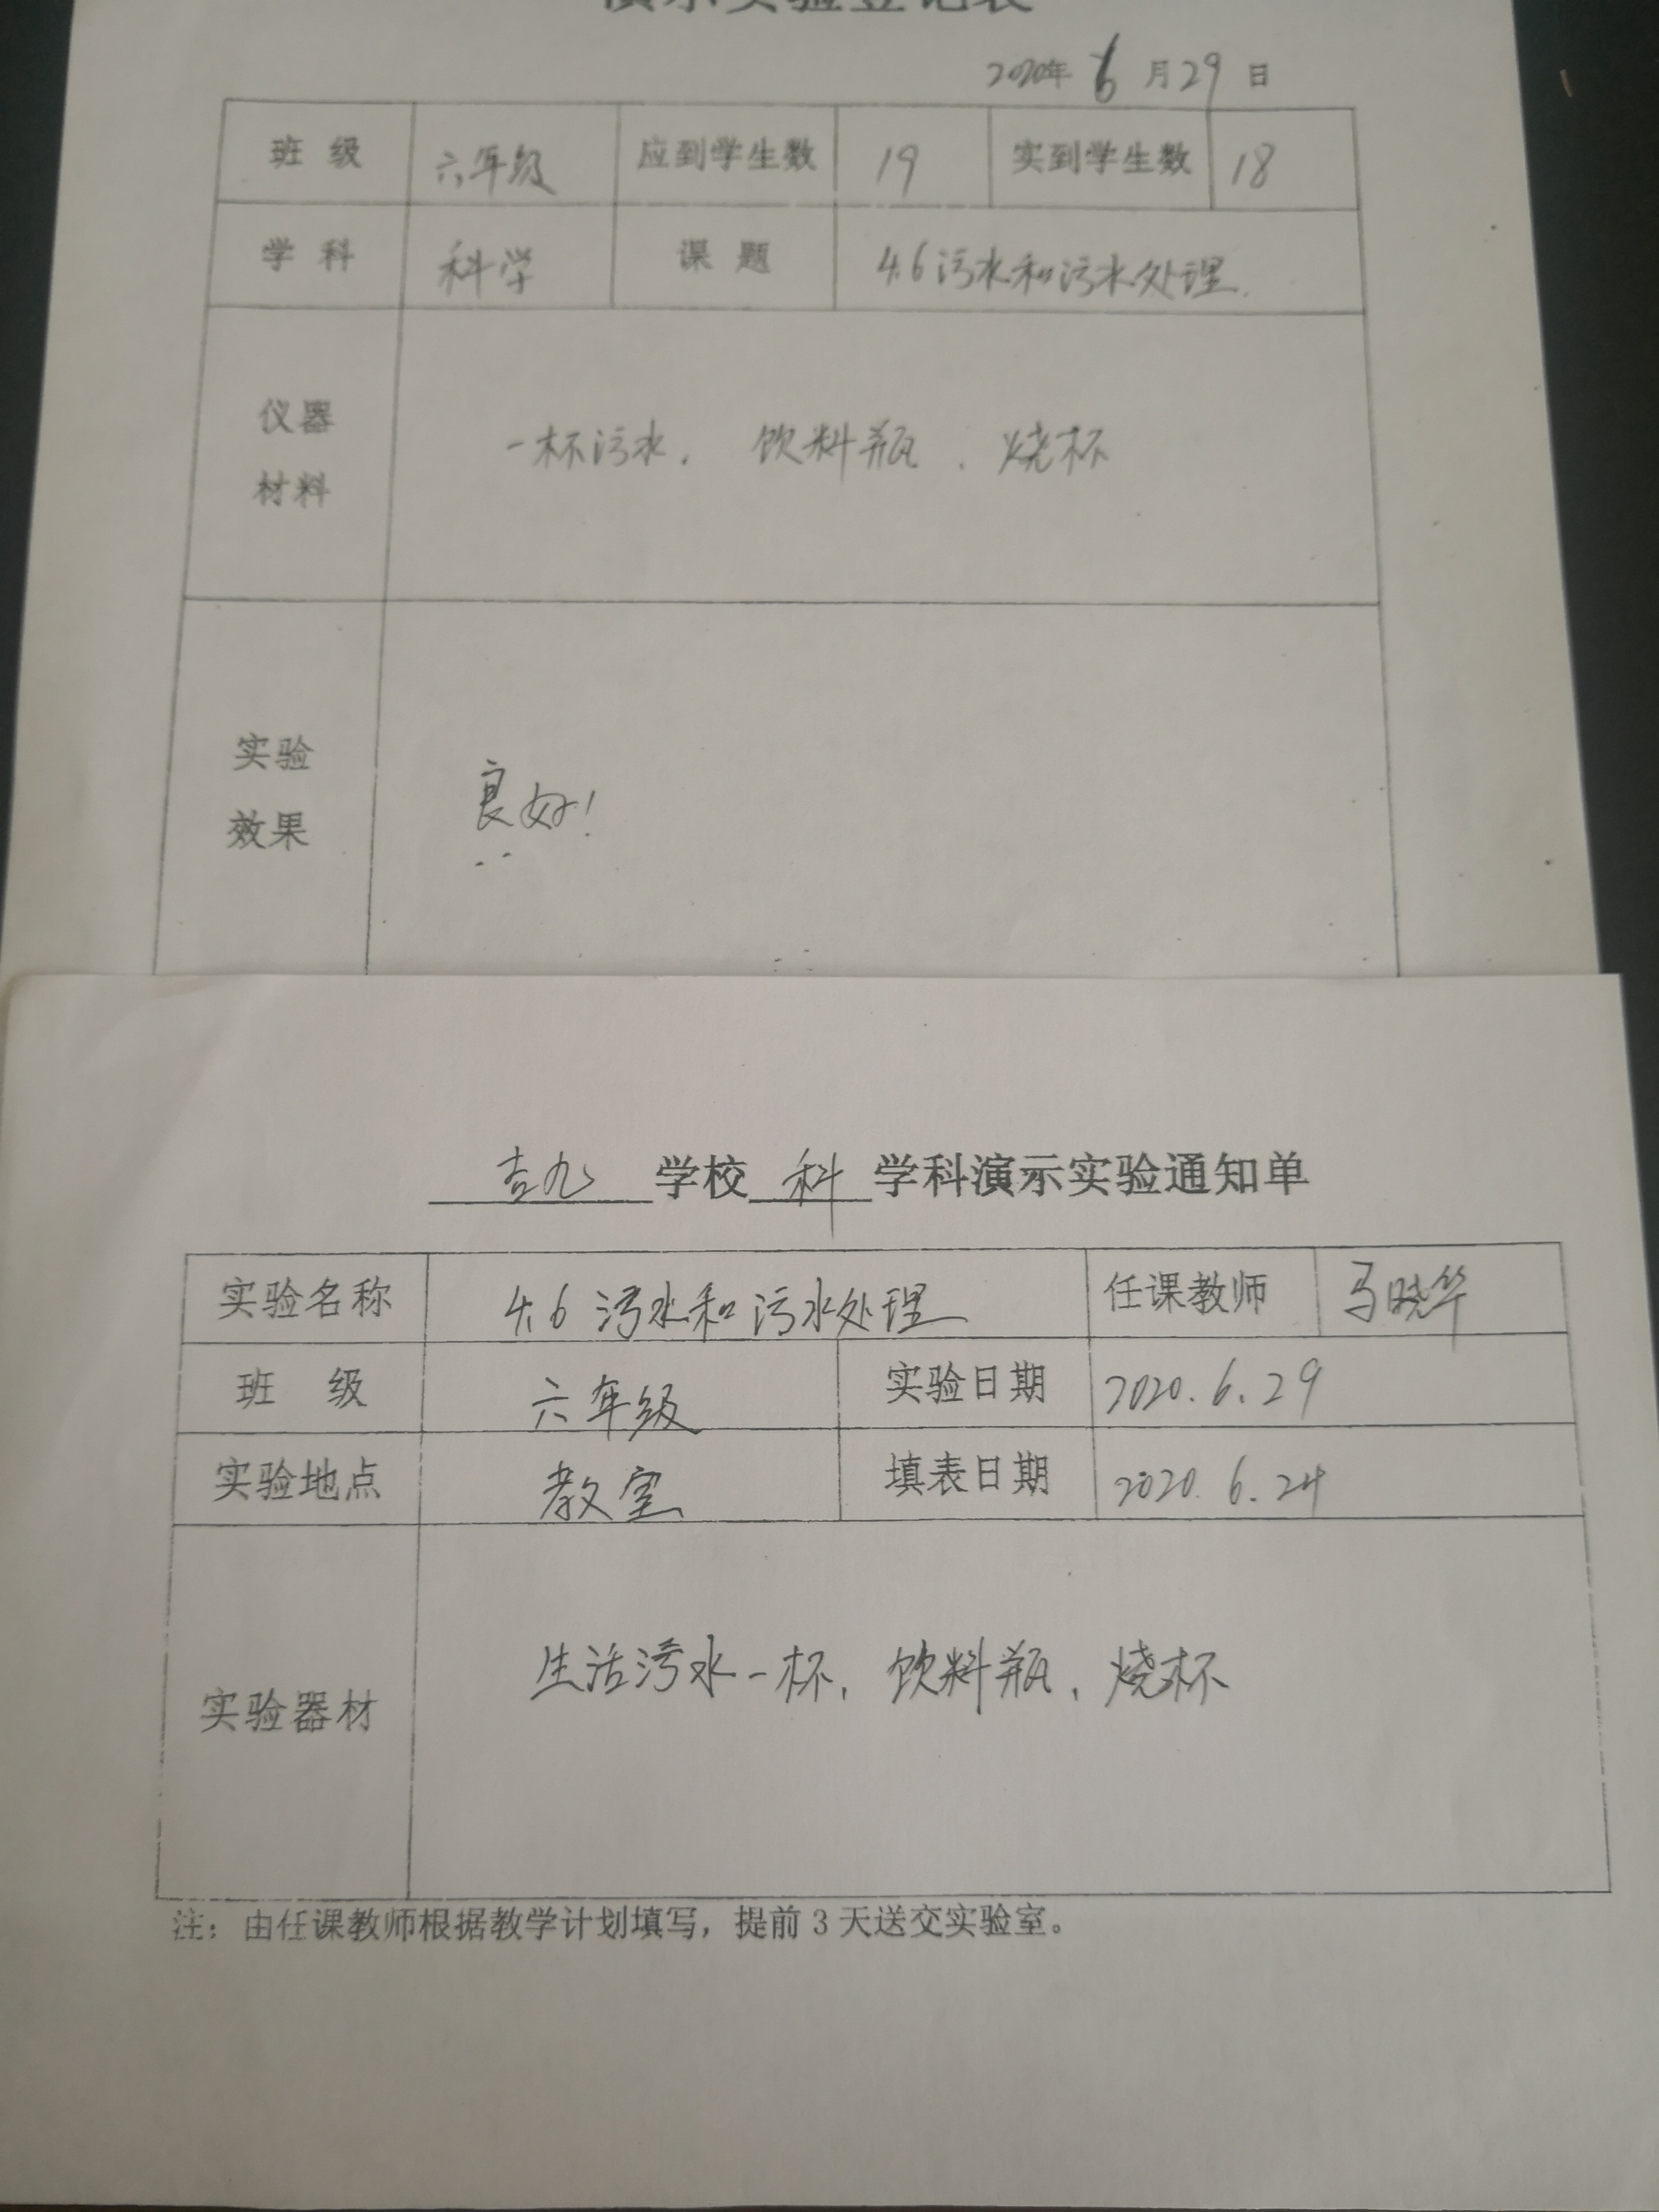 演示实验登记表
2020年 6 月 29 日
班 级 六年级 应到学生数 19 实到学生数 18
学 科 科学 课 题 4.6污水和污水处理.
仪器
材料
一杯污水, 饮料瓶, 烧杯
实验
效果
良好!
吉九 学校 科 学科演示实验通知单
实验名称 4.6 污水和污水处理 任课教师 马晓华
班 级 六年级 实验日期 2020.6.29
实验地点 教室 填表日期 2020.6.24
实验器材 生活污水一杯, 饮料瓶, 烧杯
注：由任课教师根据教学计划填写，提前 3 天送交实验室。